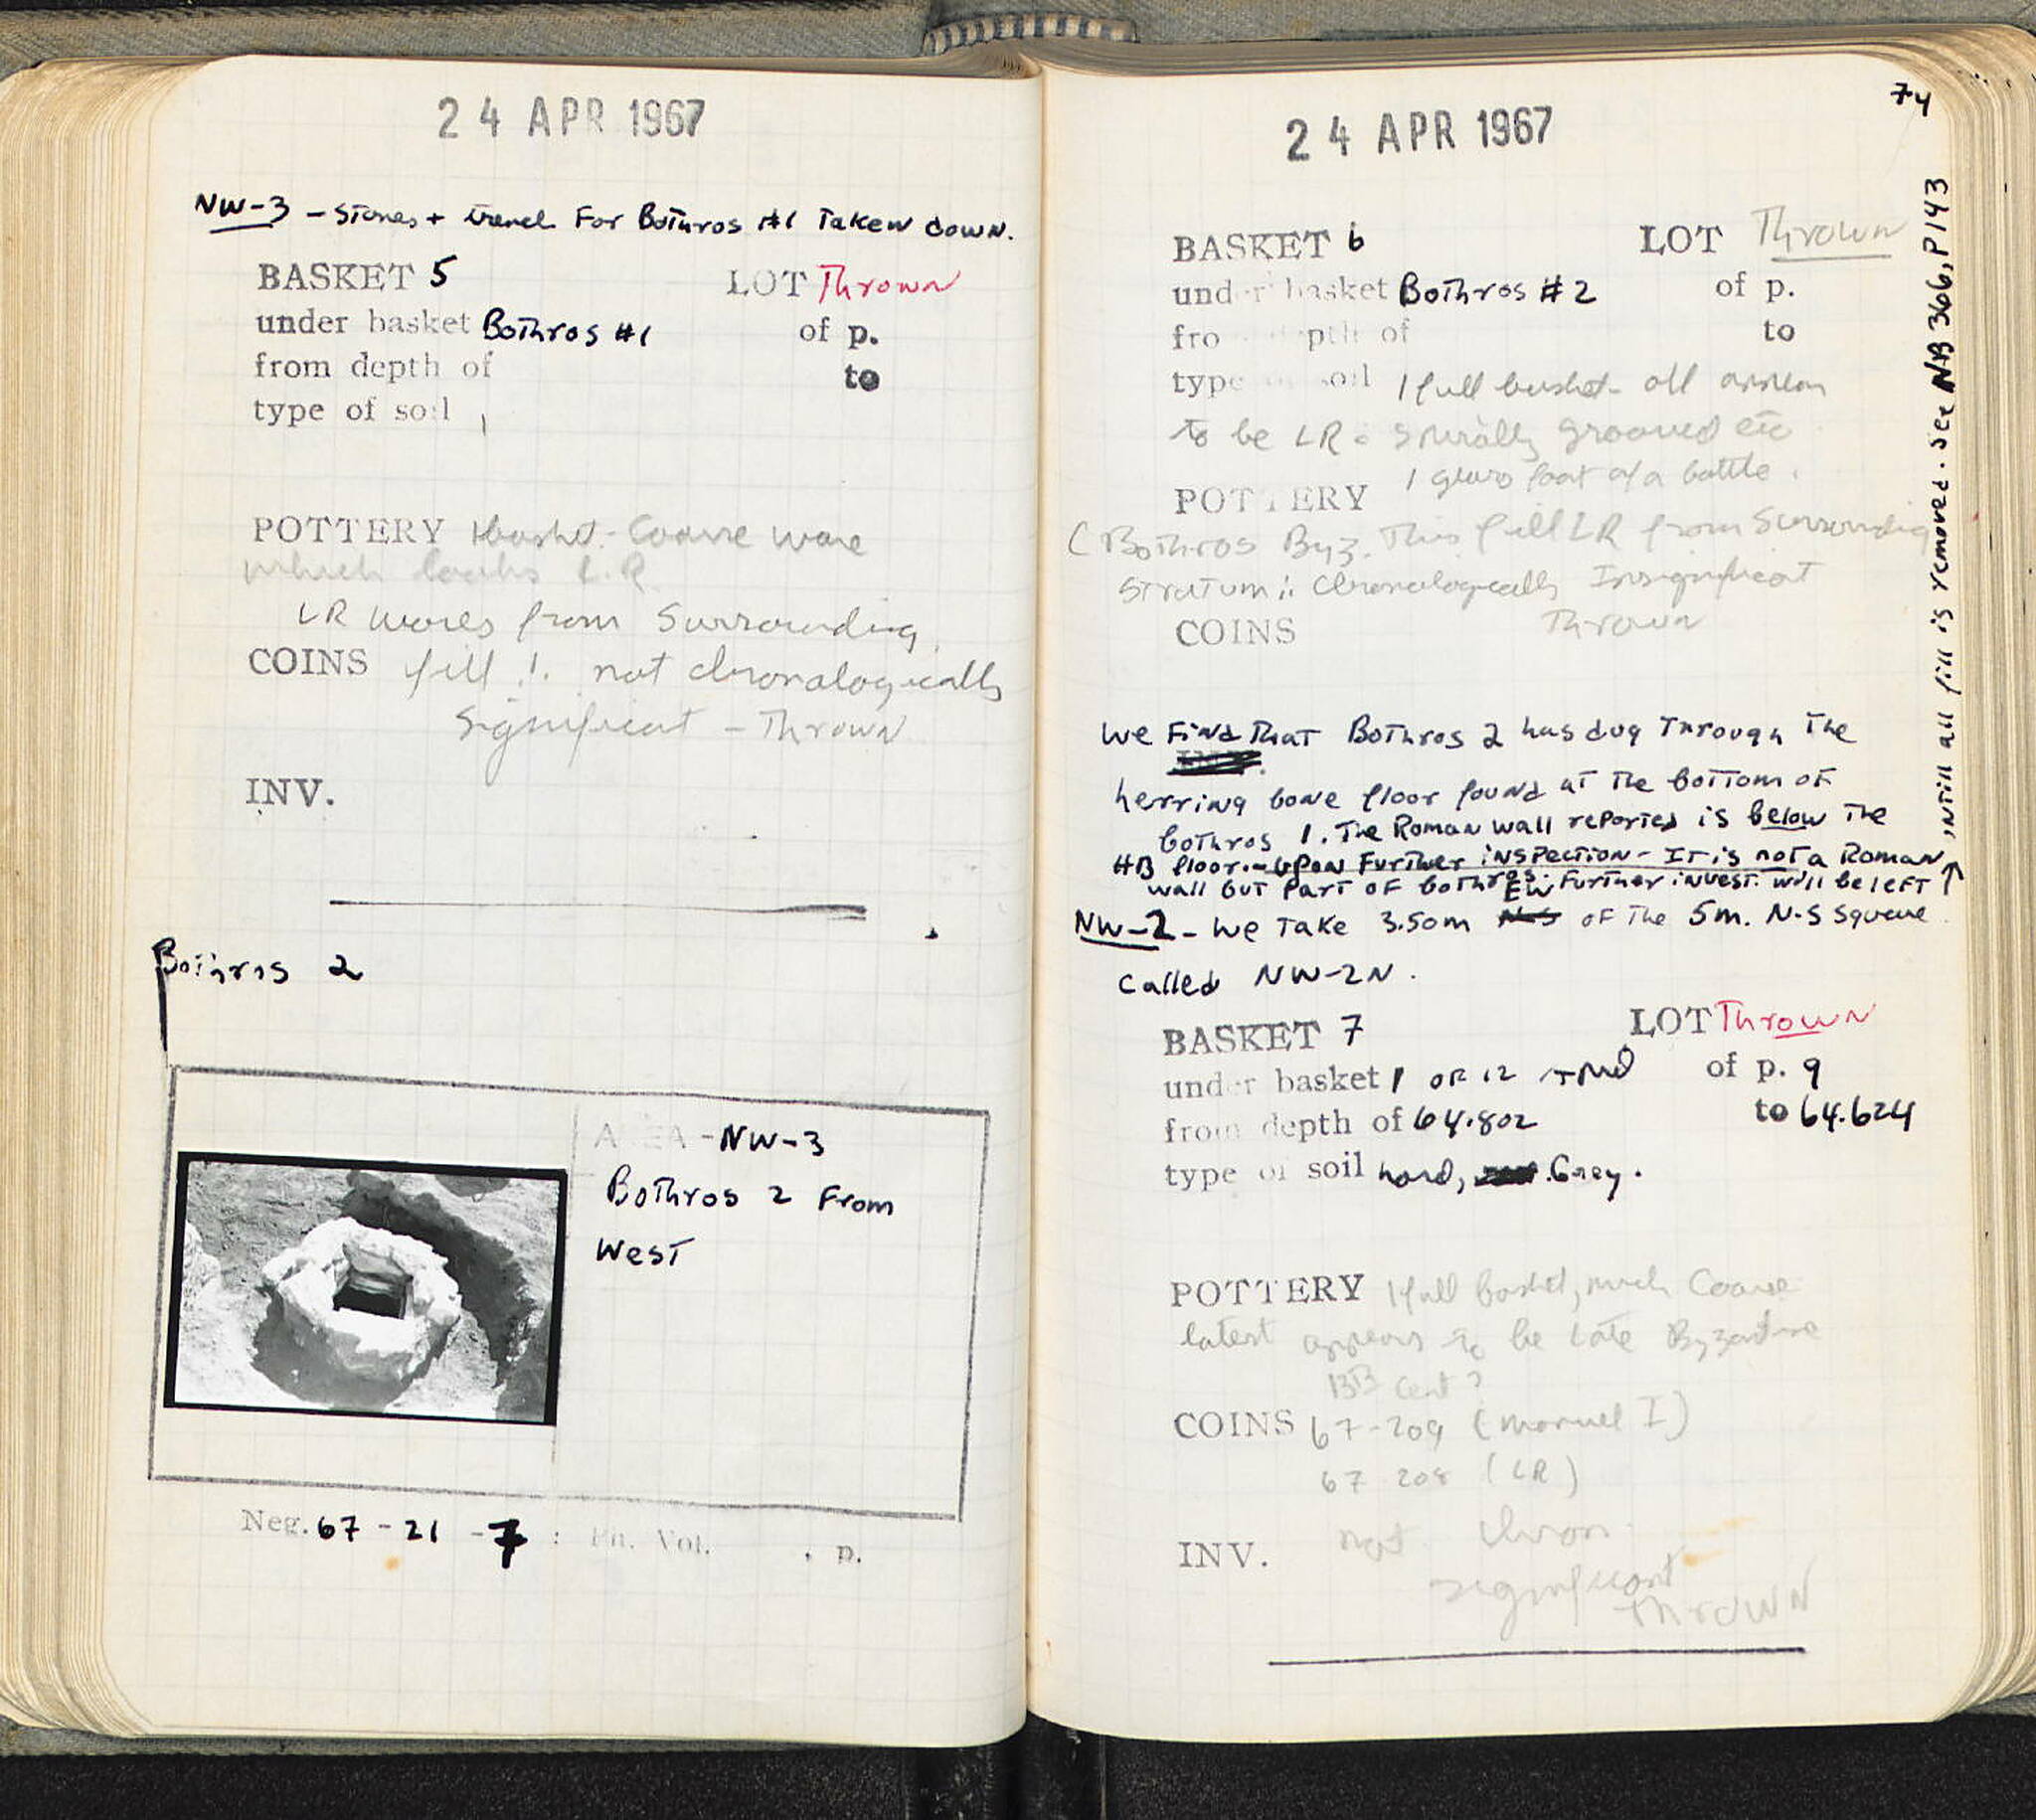 24 APR 1967
NW-3 - Stones + trench For Bothros #1 Taken down.
BASKET 5 LOT Thrown
under basket Bothros #1 of p.
from depth of to
type of soil
POTTERY 1 basket - Coarse ware
which looks L.R.
LR wares from Surrounding
COINS fill ∴ not chronologically
significant - Thrown
INV.
Bothros 2
AREA - NW-3
Bothros 2 From
West
Neg. 67 - 21 - 7 : Fn. Vol. , p.
74
24 APR 1967
BASKET 6 LOT Thrown
under basket Bothros #2 of p.
from depth of to
type of soil 1 full basket - all appears
to be LR - spirally grooved etc
1 glass foot of a bottle.
POTTERY
(Bothros Byz. This fill LR from Surrounding
Stratum ∴ Chronologically Insignificant
COINS Thrown
We Find That Bothros 2 has dug Through The
herring bone floor found at The bottom of
bothros 1. The Roman wall reported is below The
HB floor. - Upon Further inspection - It is not a Roman
wall but part of bothros. Further invest. will be left ↑
intill all fill is removed. See NB 366, P143
NW-2 - We Take 3.50m N-S EW of The 5m. N-S Square
Called NW-2N.
BASKET 7 LOT Thrown
under basket 1 OF 12 of p. 9
from depth of 64.802 to 64.624
type of soil hard, Grey.
POTTERY 1 full basket, much Coarse
latest appears to be Late Byzantine
13th Cent?
COINS 67-209 (Manuel I)
67 208 (LR)
INV. not chron.
significant
Thrown